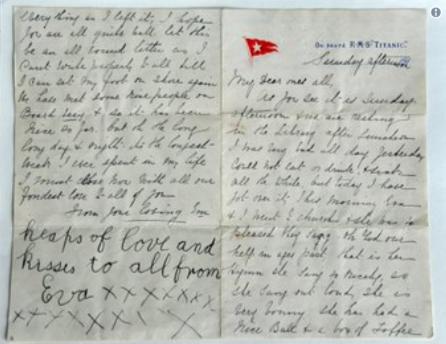 On board R.M.S. "TITANIC."
Sunday afternoon
My Dear ones all,
As you see it is Sunday
afternoon & we are resting
in the library after luncheon
I was very bad all day yesterday
could not eat or drink & sick
all the while, but today I have
got over it. This morning Eva
& I went to church & she was so
pleased they sang Oh God our
help in ages past that is her
Hymn she sang so nicely, so
she sang out loud, she is
very bonny she has had a
nice Ball & a box of Toffee
everything as I left it, I hope
you are all quite well let this
be an all round letter as I
can't write properly to all till
I can set my foot on shore again
We have met some nice people on
Board and so it has been
nice so far. But oh the long
long day & nights its the longest
break I ever spent in my life
I must close now with all our
fondest love to all of you
From your loving
heaps of love and
kisses to all from
Eva xxxxxx
xxxxxxx